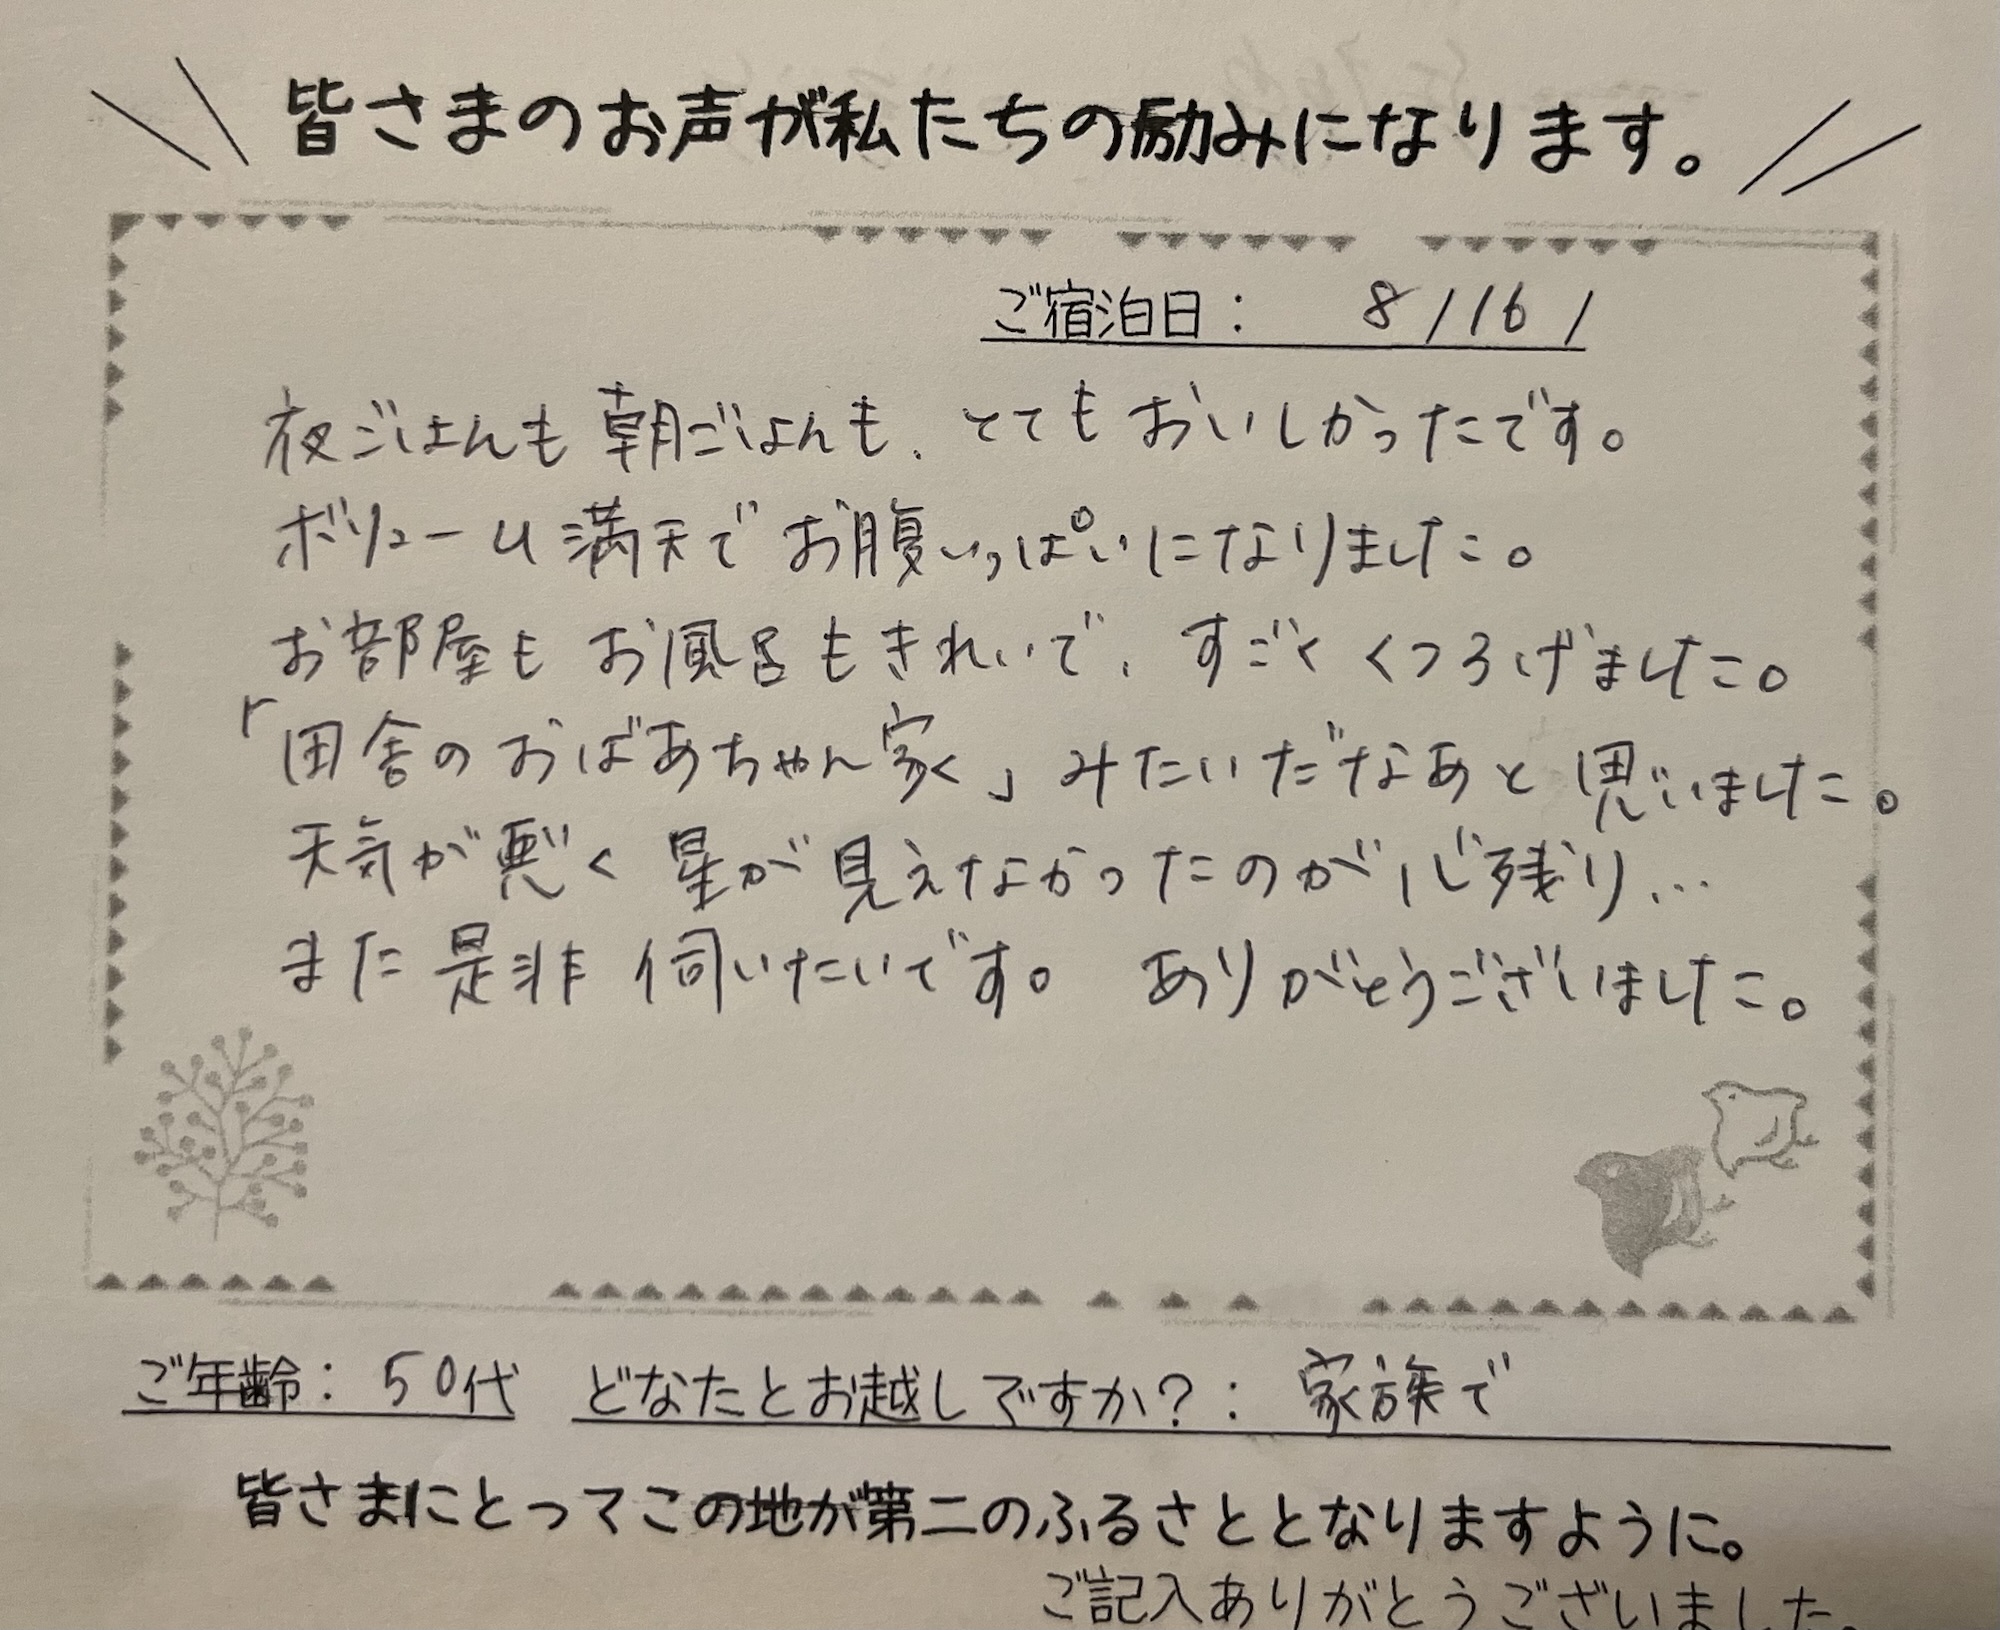 皆さまのお声が私たちの励みになります。
ご宿泊日： 8/16/
夜ごはんも朝ごはんも、とてもおいしかったです。
ボリューム満天でお腹いっぱいになりました。
お部屋もお風呂もきれいで、すごくくつろげました。
「田舎のおばあちゃん家」みたいだなあと思いました。
天気が悪く星が見えなかったのが心残り…
また是非伺いたいです。 ありがとうございました。
ご年齢：50代 どなたとお越しですか？：家族で
皆さまにとってこの地が第二のふるさととなりますように。
ご記入ありがとうございました。